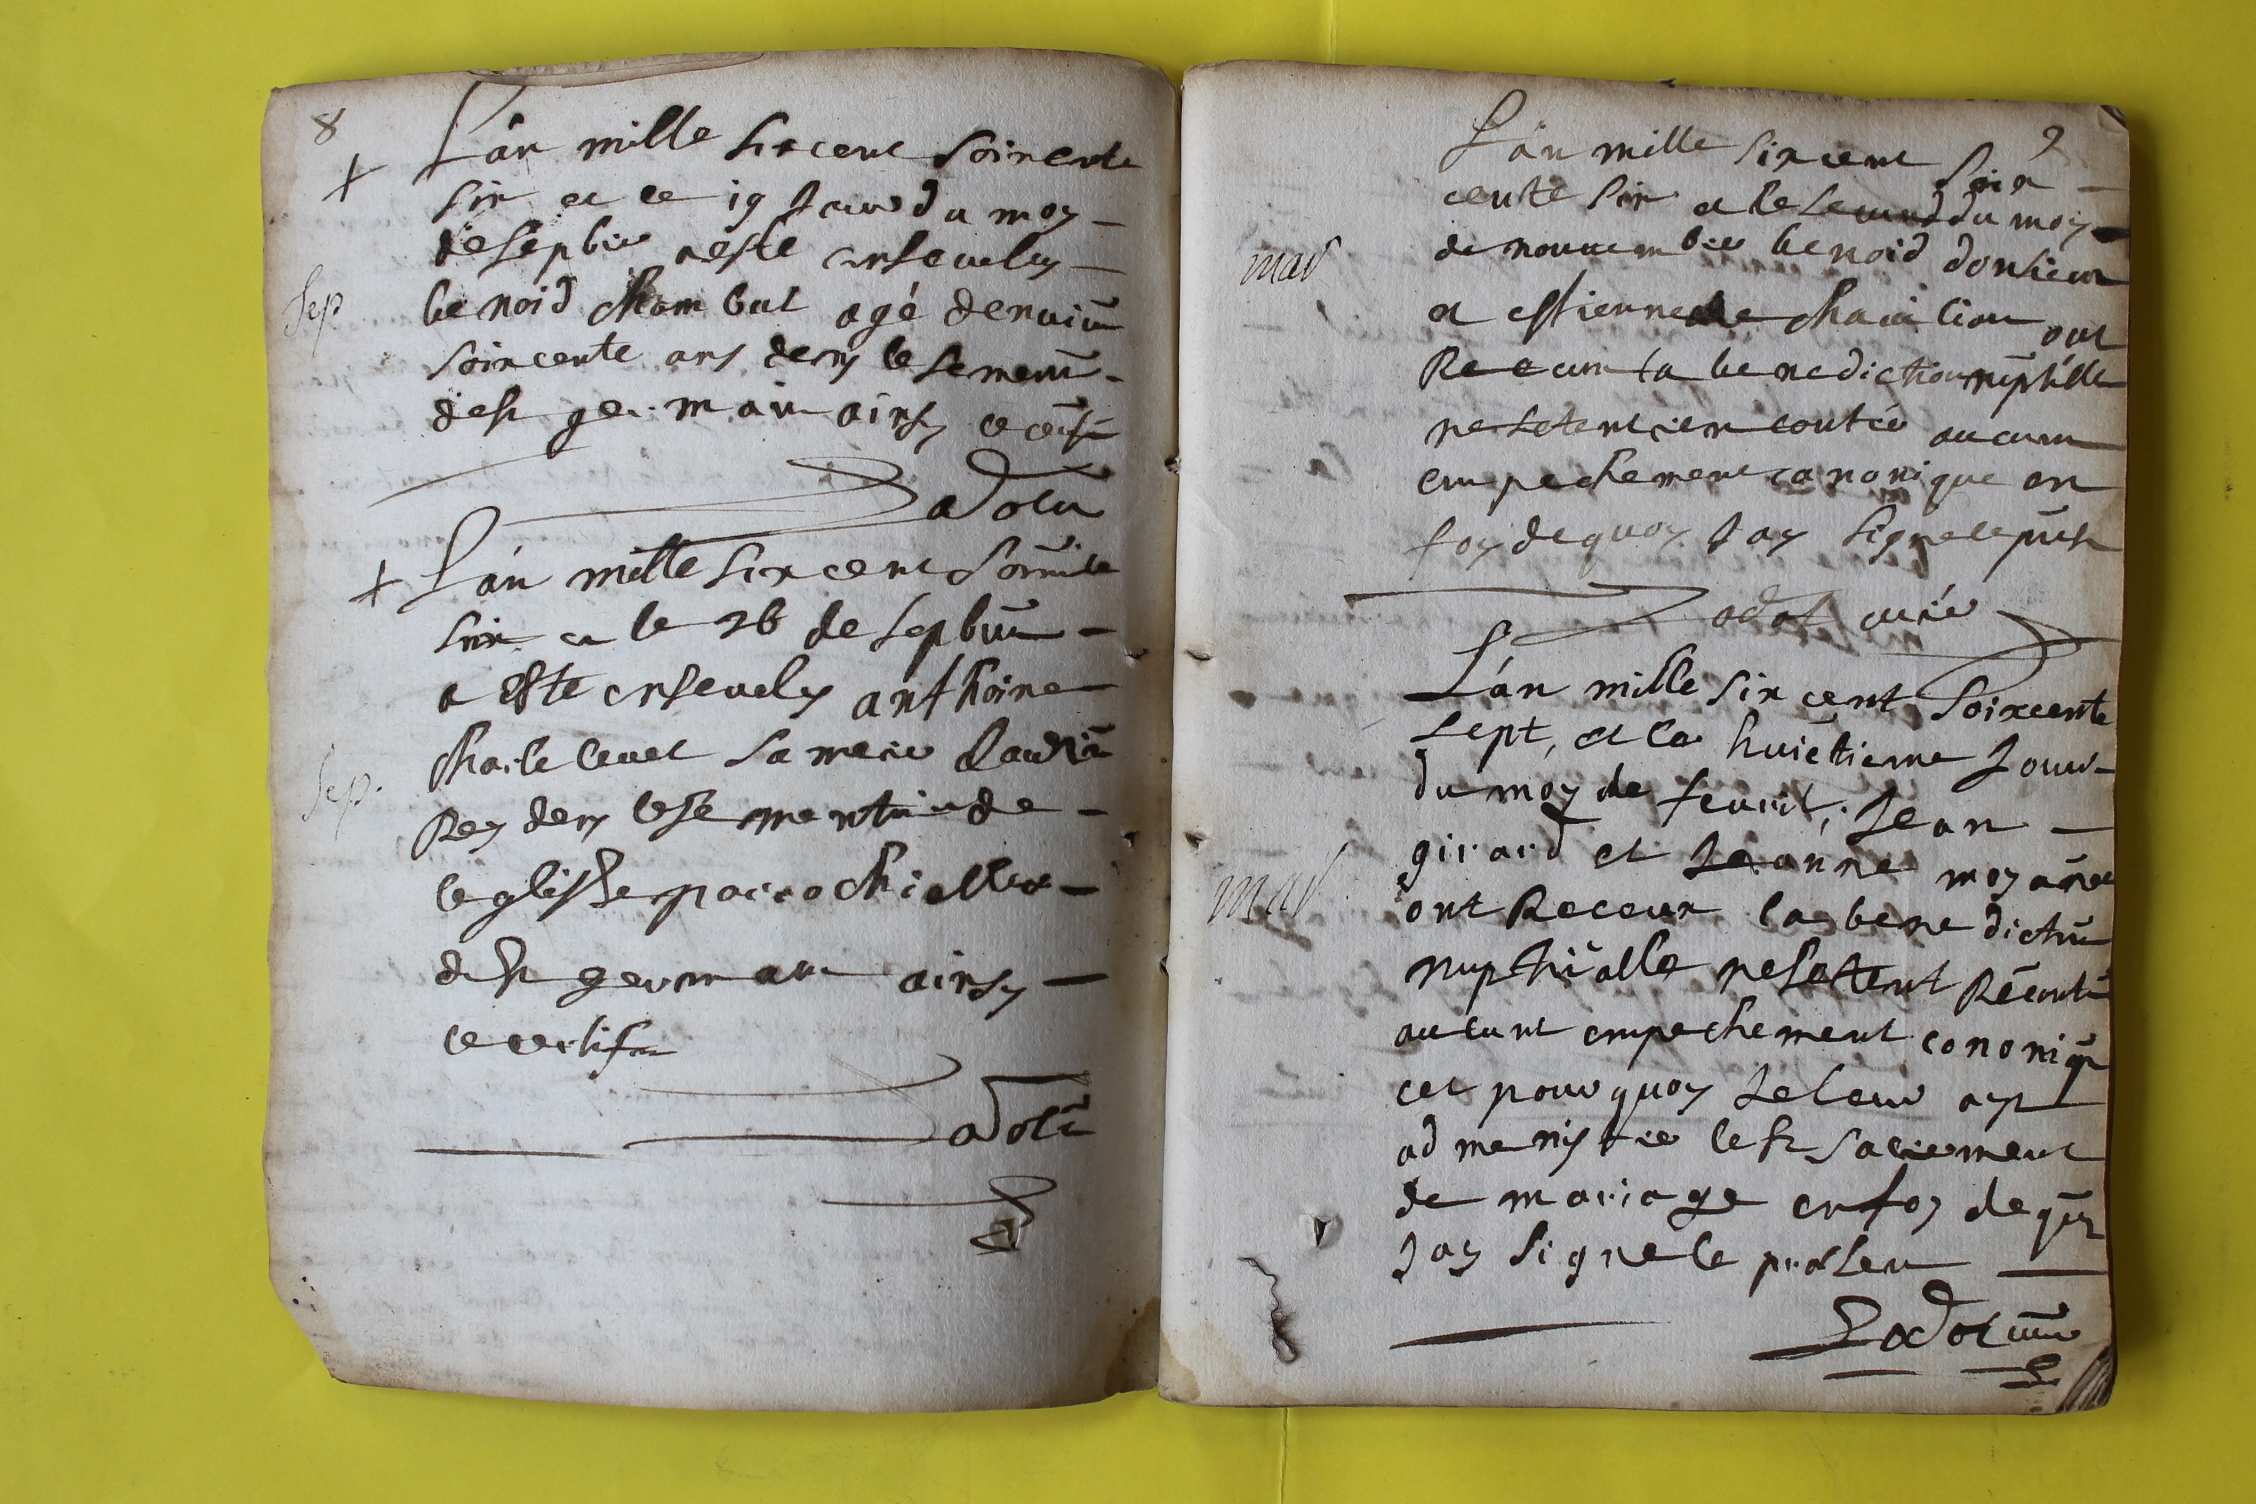 8
+ L'an mille six cent soixente
six et le 19 Jour du moy
de sepbre a esté enseuely
benoid Chambut agé denuiro
soixcente ans dens le sement
de st germain ainsy ce certifie
adolu
+ L'an mille six cent
six et le 26 de sepbre
a este enseuely anthoine
sa mere
Rey dens le sementiere de
leglisse parrochialle
de st germain ainsy
ce certifie
Sep
Sep.
9
L'an mille six cent soix
cente six et le second du moy
de nouuembre benoid donsieur
et estienne ont
Receum la benediction nuptialle
ne setent rencontré aucum
empechement canonique en
foy de quoy Jay signe le pnst
adol curé
mar
L'an mille six cent soixcente
sept, et la huictieme Jour
du moy de feurié, Jean
girard et Jeanne moyane
ont Receux la benediction
nupthialle ne setent Recontré
aucunt empechement cononique
cet pourquoy Je leur ay
admenistre le st sacrement
de mariage en foy de quoy
Jay signe le present
adol cure
mar